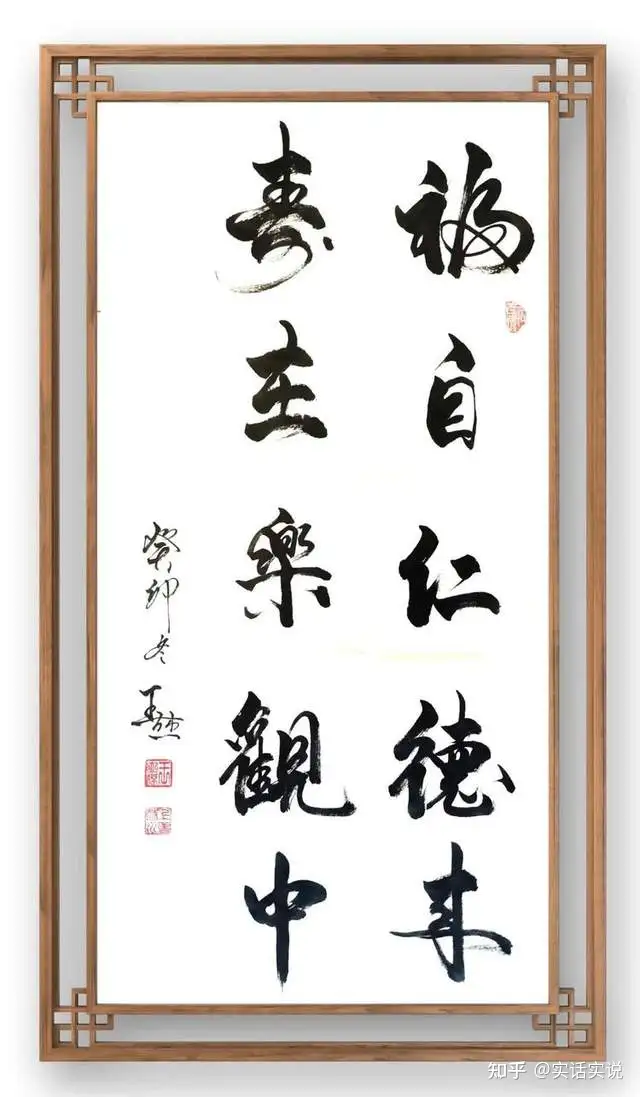 福自仁德来
寿在樂觀中
癸卯冬
王
知乎 @实话实说